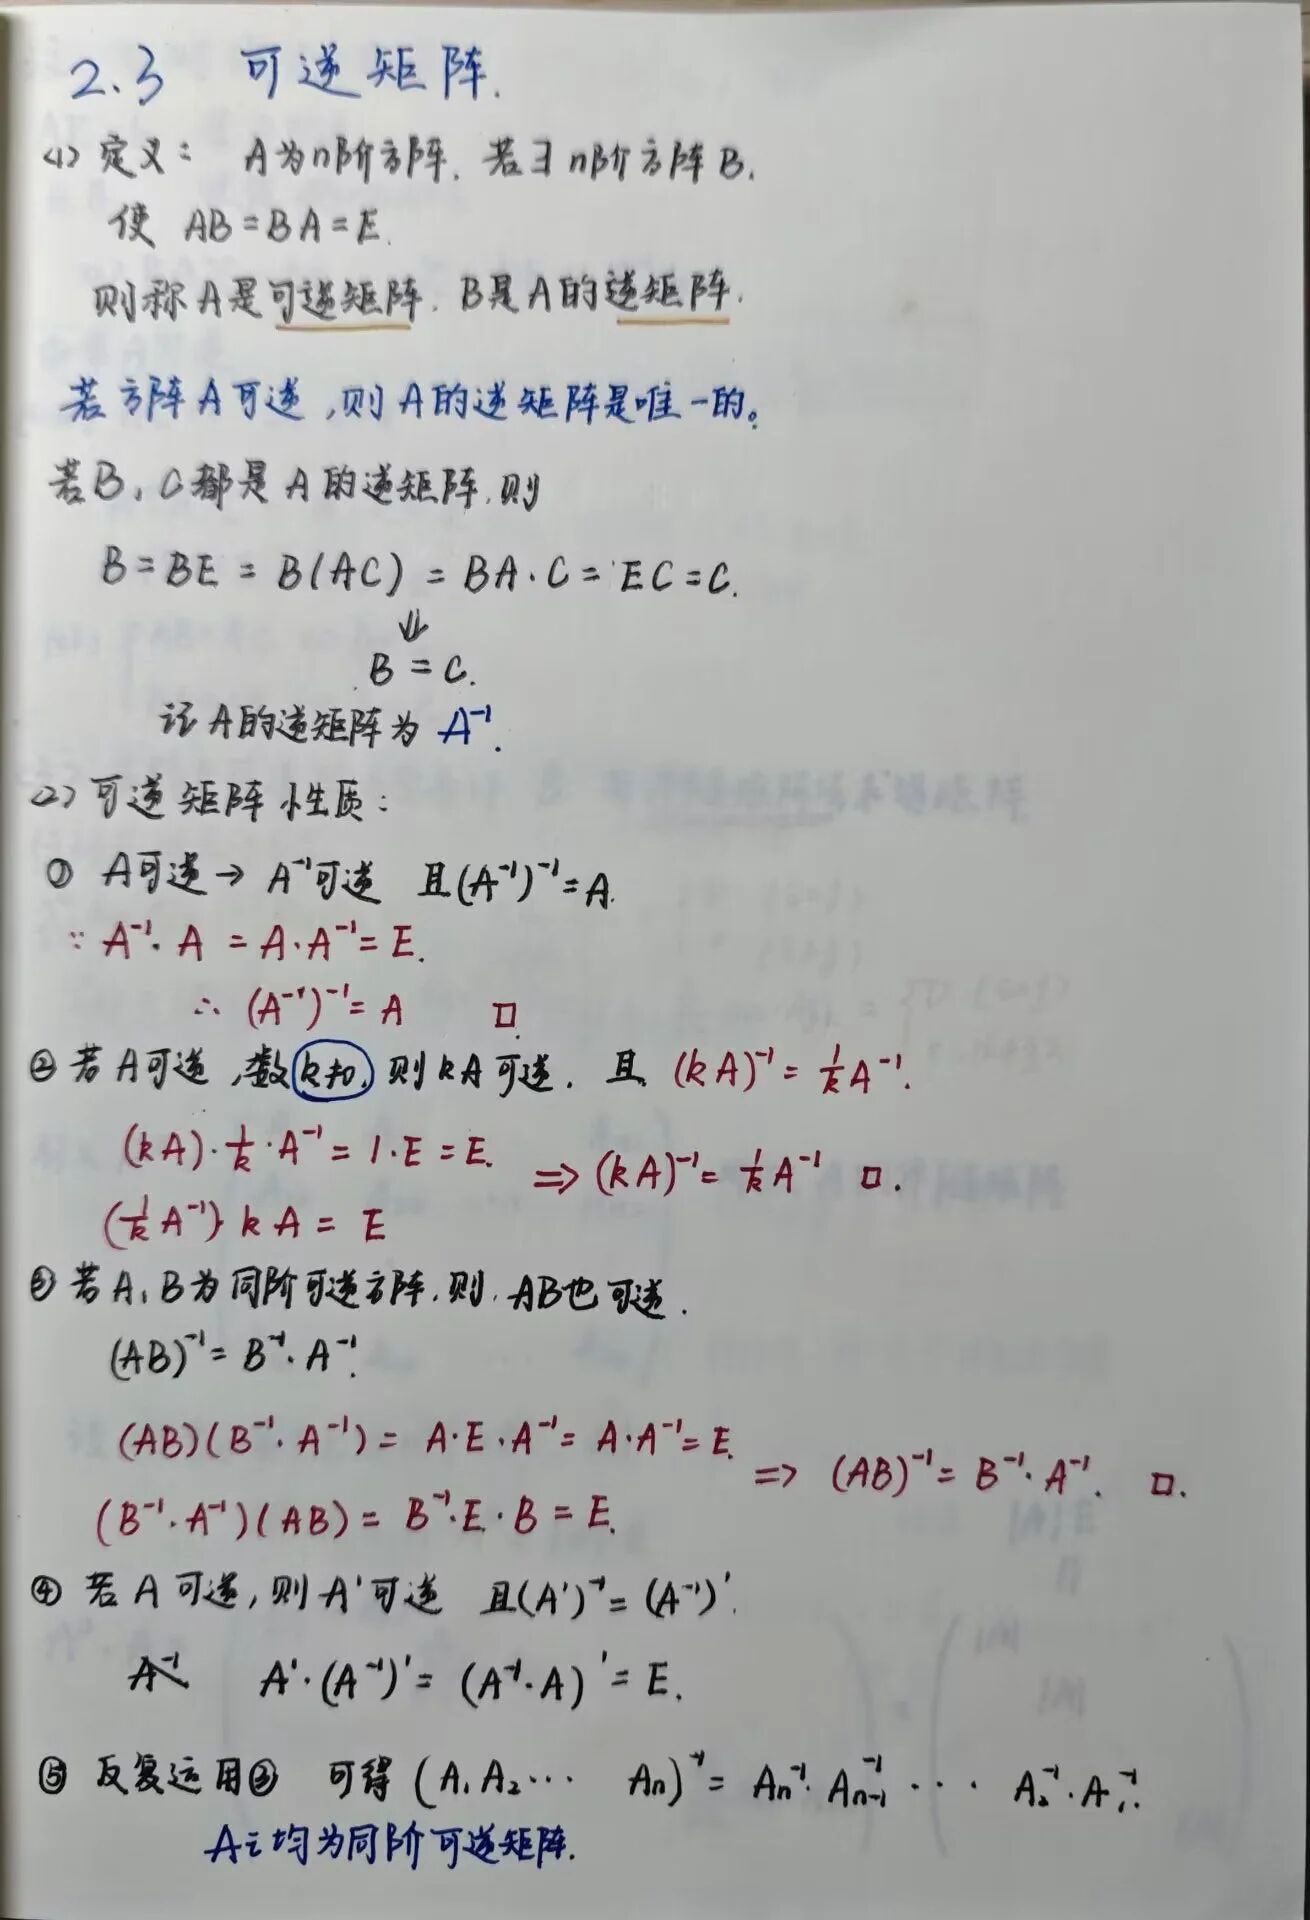 2.3 可逆矩阵.
(1) 定义： A为n阶方阵. 若∃n阶方阵B.
使 AB=BA=E.
则称A是可逆矩阵. B是A的逆矩阵.
若方阵A可逆,则A的逆矩阵是唯一的。
若B, C都是A的逆矩阵,则
B=BE=B(AC)=BA·C=EC=C.
⇓
B=C.
记A的逆矩阵为 A⁻¹.
(2) 可逆矩阵性质：
① A可逆→A⁻¹可逆 且(A⁻¹)⁻¹=A.
∵ A⁻¹·A=A·A⁻¹=E.
∴ (A⁻¹)⁻¹=A □
② 若A可逆,数k≠0,则kA可逆. 且 (kA)⁻¹=1/k A⁻¹.
(kA)·1/k·A⁻¹=1·E=E.
⇒(kA)⁻¹=1/k A⁻¹ □.
(1/k A⁻¹)·kA=E
③ 若A,B为同阶可逆方阵.则,AB也可逆.
(AB)⁻¹=B⁻¹·A⁻¹.
(AB)(B⁻¹·A⁻¹)=A·E·A⁻¹=A·A⁻¹=E.
⇒ (AB)⁻¹=B⁻¹·A⁻¹. □.
(B⁻¹·A⁻¹)(AB)=B⁻¹·E·B=E.
④ 若A可逆,则A'可逆 且(A')⁻¹=(A⁻¹)'.
A'·(A⁻¹)'=(A⁻¹·A)'=E.
⑤ 反复运用③ 可得(A₁A₂··· Aₙ)⁻¹=Aₙ⁻¹·Aₙ₋₁⁻¹···· A₂⁻¹·A₁⁻¹.
Aᵢ均为同阶可逆矩阵.